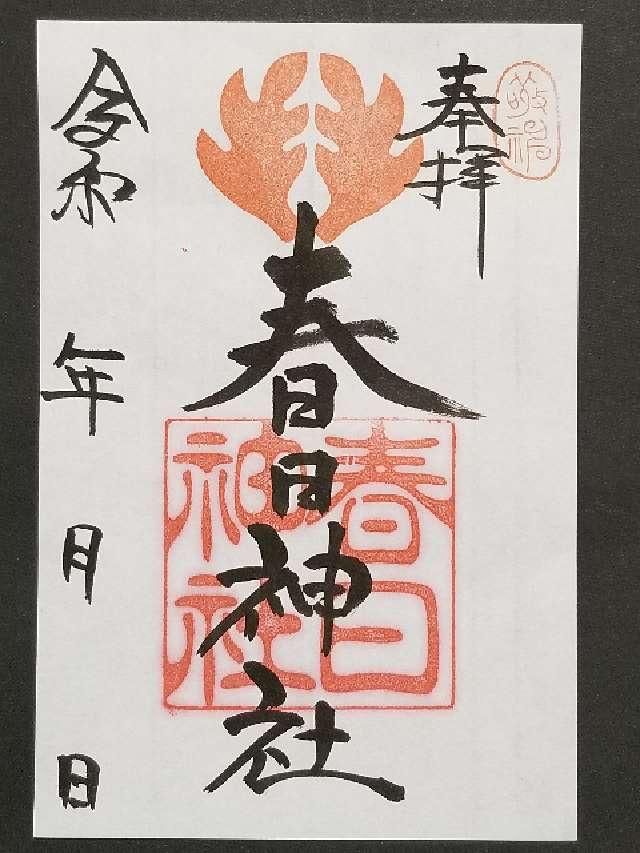 敬神
奉拝
春日神社
春日
神社
令和 年 月 日